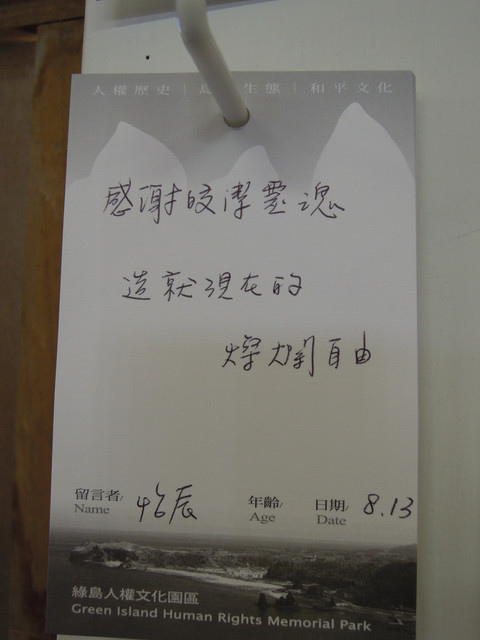 人權歷史｜島 生態｜和平文化
感謝皎潔靈魂
造就現在的
燦爛自由
留言者/ 怡辰 年齡/ 日期/ 8.13
Name Age Date
綠島人權文化園區
Green Island Human Rights Memorial Park